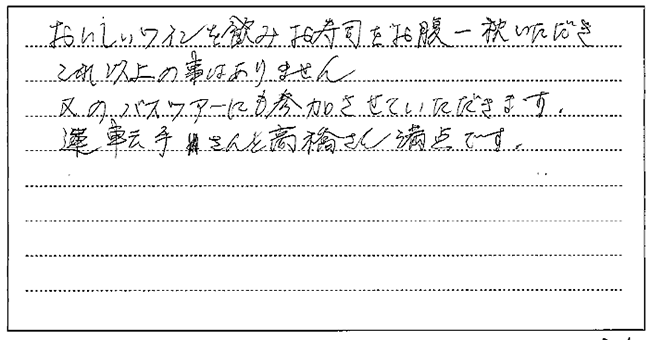 おいしいワインを飲みお寿司をお腹一杯いただき
これ以上の事はありません
又のバスツアーにも参加させていただきます.
運転手さんと高橋さん満点です.